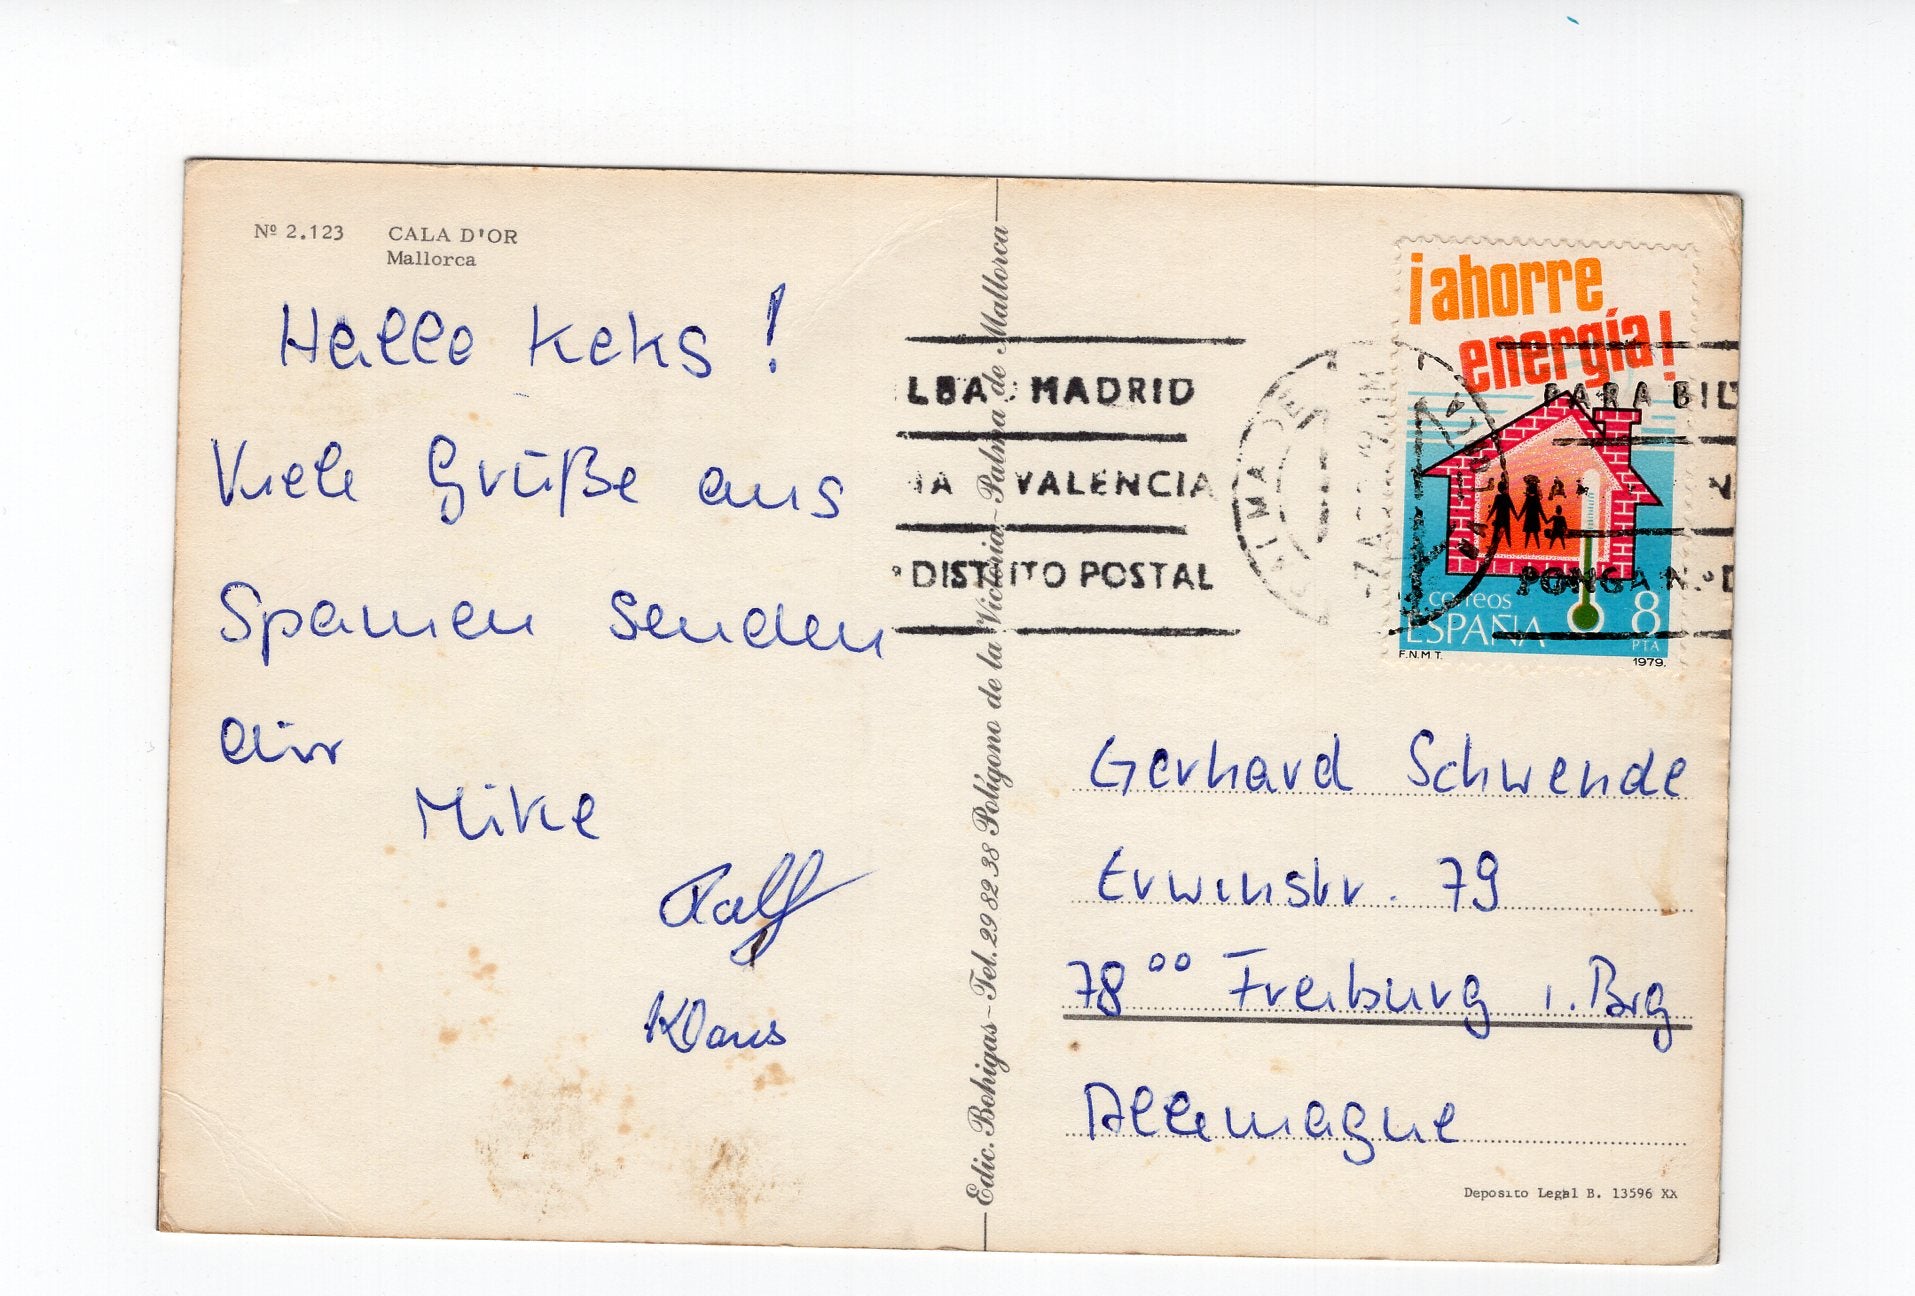 Nº 2.123 CALA D'OR
Mallorca
Hallo Keks !
Viele Grüße aus
Spanien senden
dir
Mike
Ralf
Klaus
Edic. Bohigas - Tel. 29 82 38 Polígono de la Victoria - Palma de Mallorca
LBA MADRID
VALENCIA
DISTRITO POSTAL
¡ahorre
energía!
PARA BIL
PONGA N.º D
correos
ESPAÑA
8
PTA
F.N.M.T.
1979.
Gerhard Schwende
Erwinstr. 79
78⁰⁰ Freiburg i. Brg
Allemagne
Deposito Legal B. 13596 XX